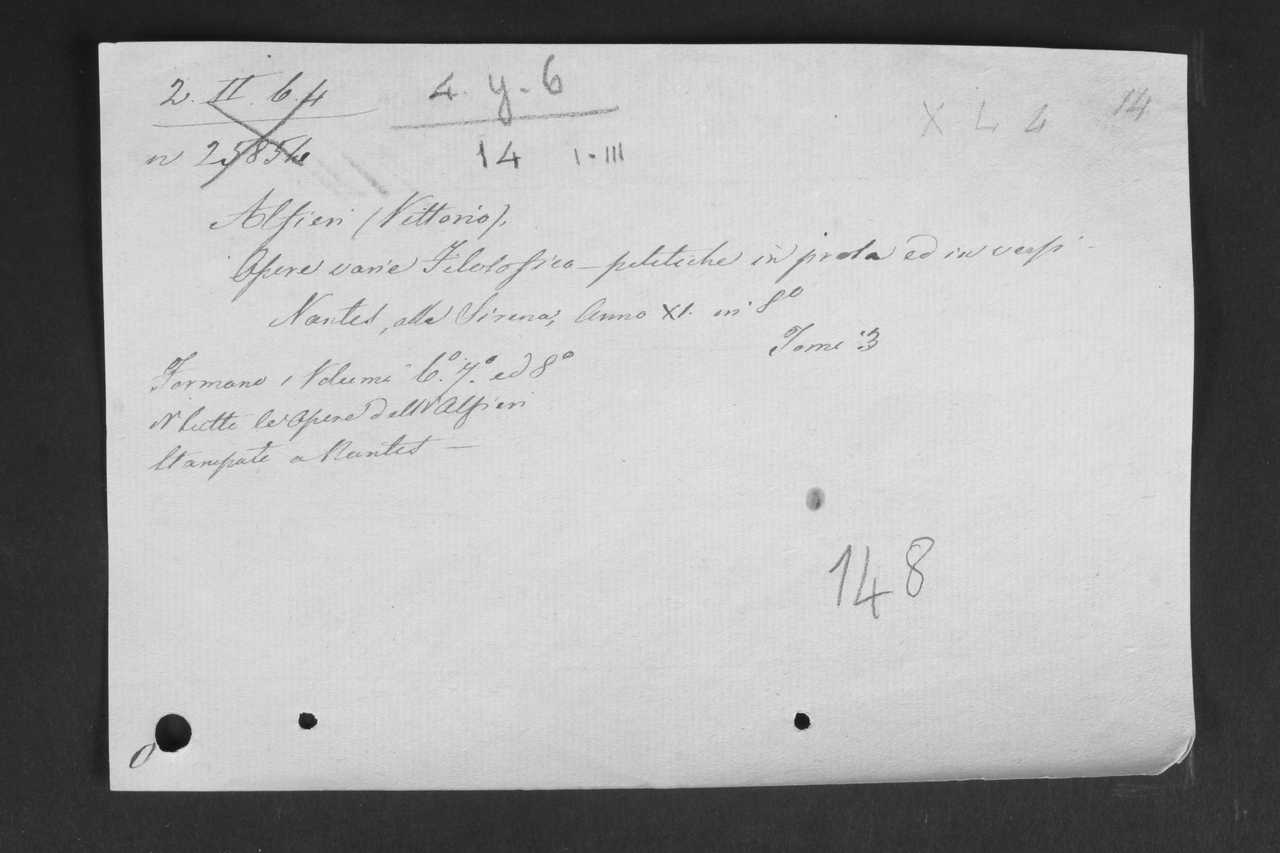 2. II. 6. 4
4. y. 6
14 I-III
X L 4 14
Alfieri (Vittorio).
Opere varie Filosofico-politiche in prosa ed in versi -
Nantes, alla Sirena, Anno XI. in 8º
Tomi 3
Formano i Volumi 6º. 7º. ed 8º
tutte le Opere dell'Alfieri
Stampate a Nantes —
148